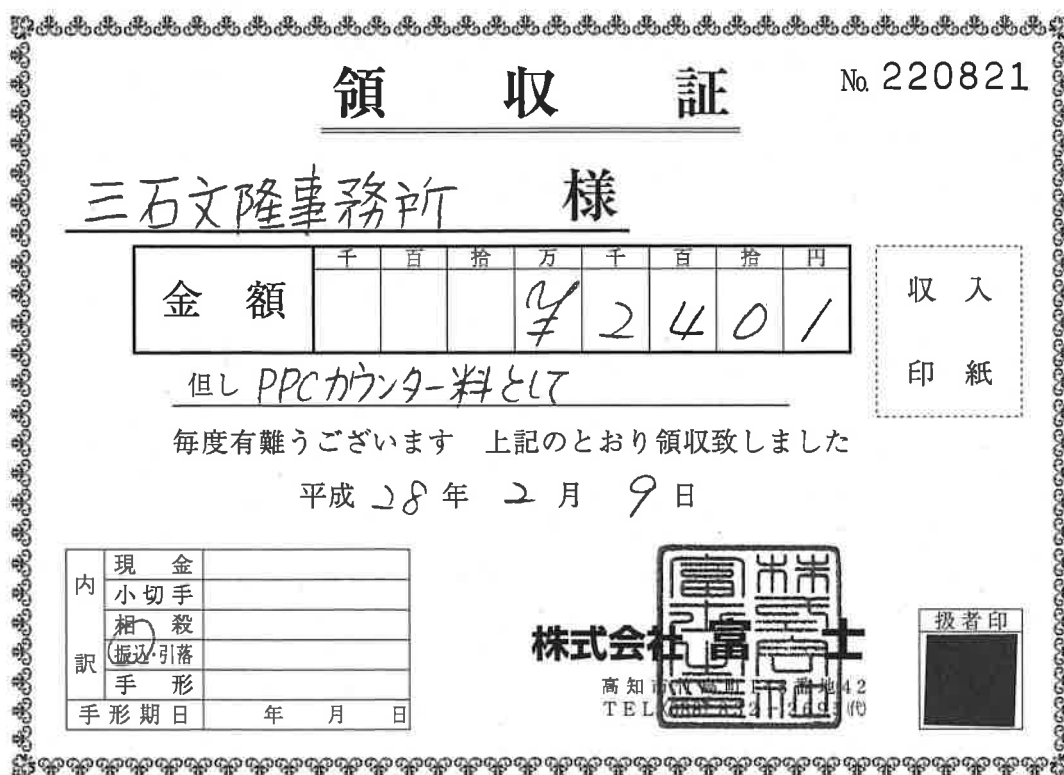 領収証
No. 220821
三石文隆事務所 様
千 百 拾 万 千 百 拾 円
金額 ¥2401
収入
印紙
但し PPCカウンター料として
毎度有難うございます 上記のとおり領収致しました
平成 28年 2月 9日
内訳
現金
小切手
相殺
振込・引落
手形
手形期日 年 月 日
株式会社 富士
高知市
TEL
扱者印